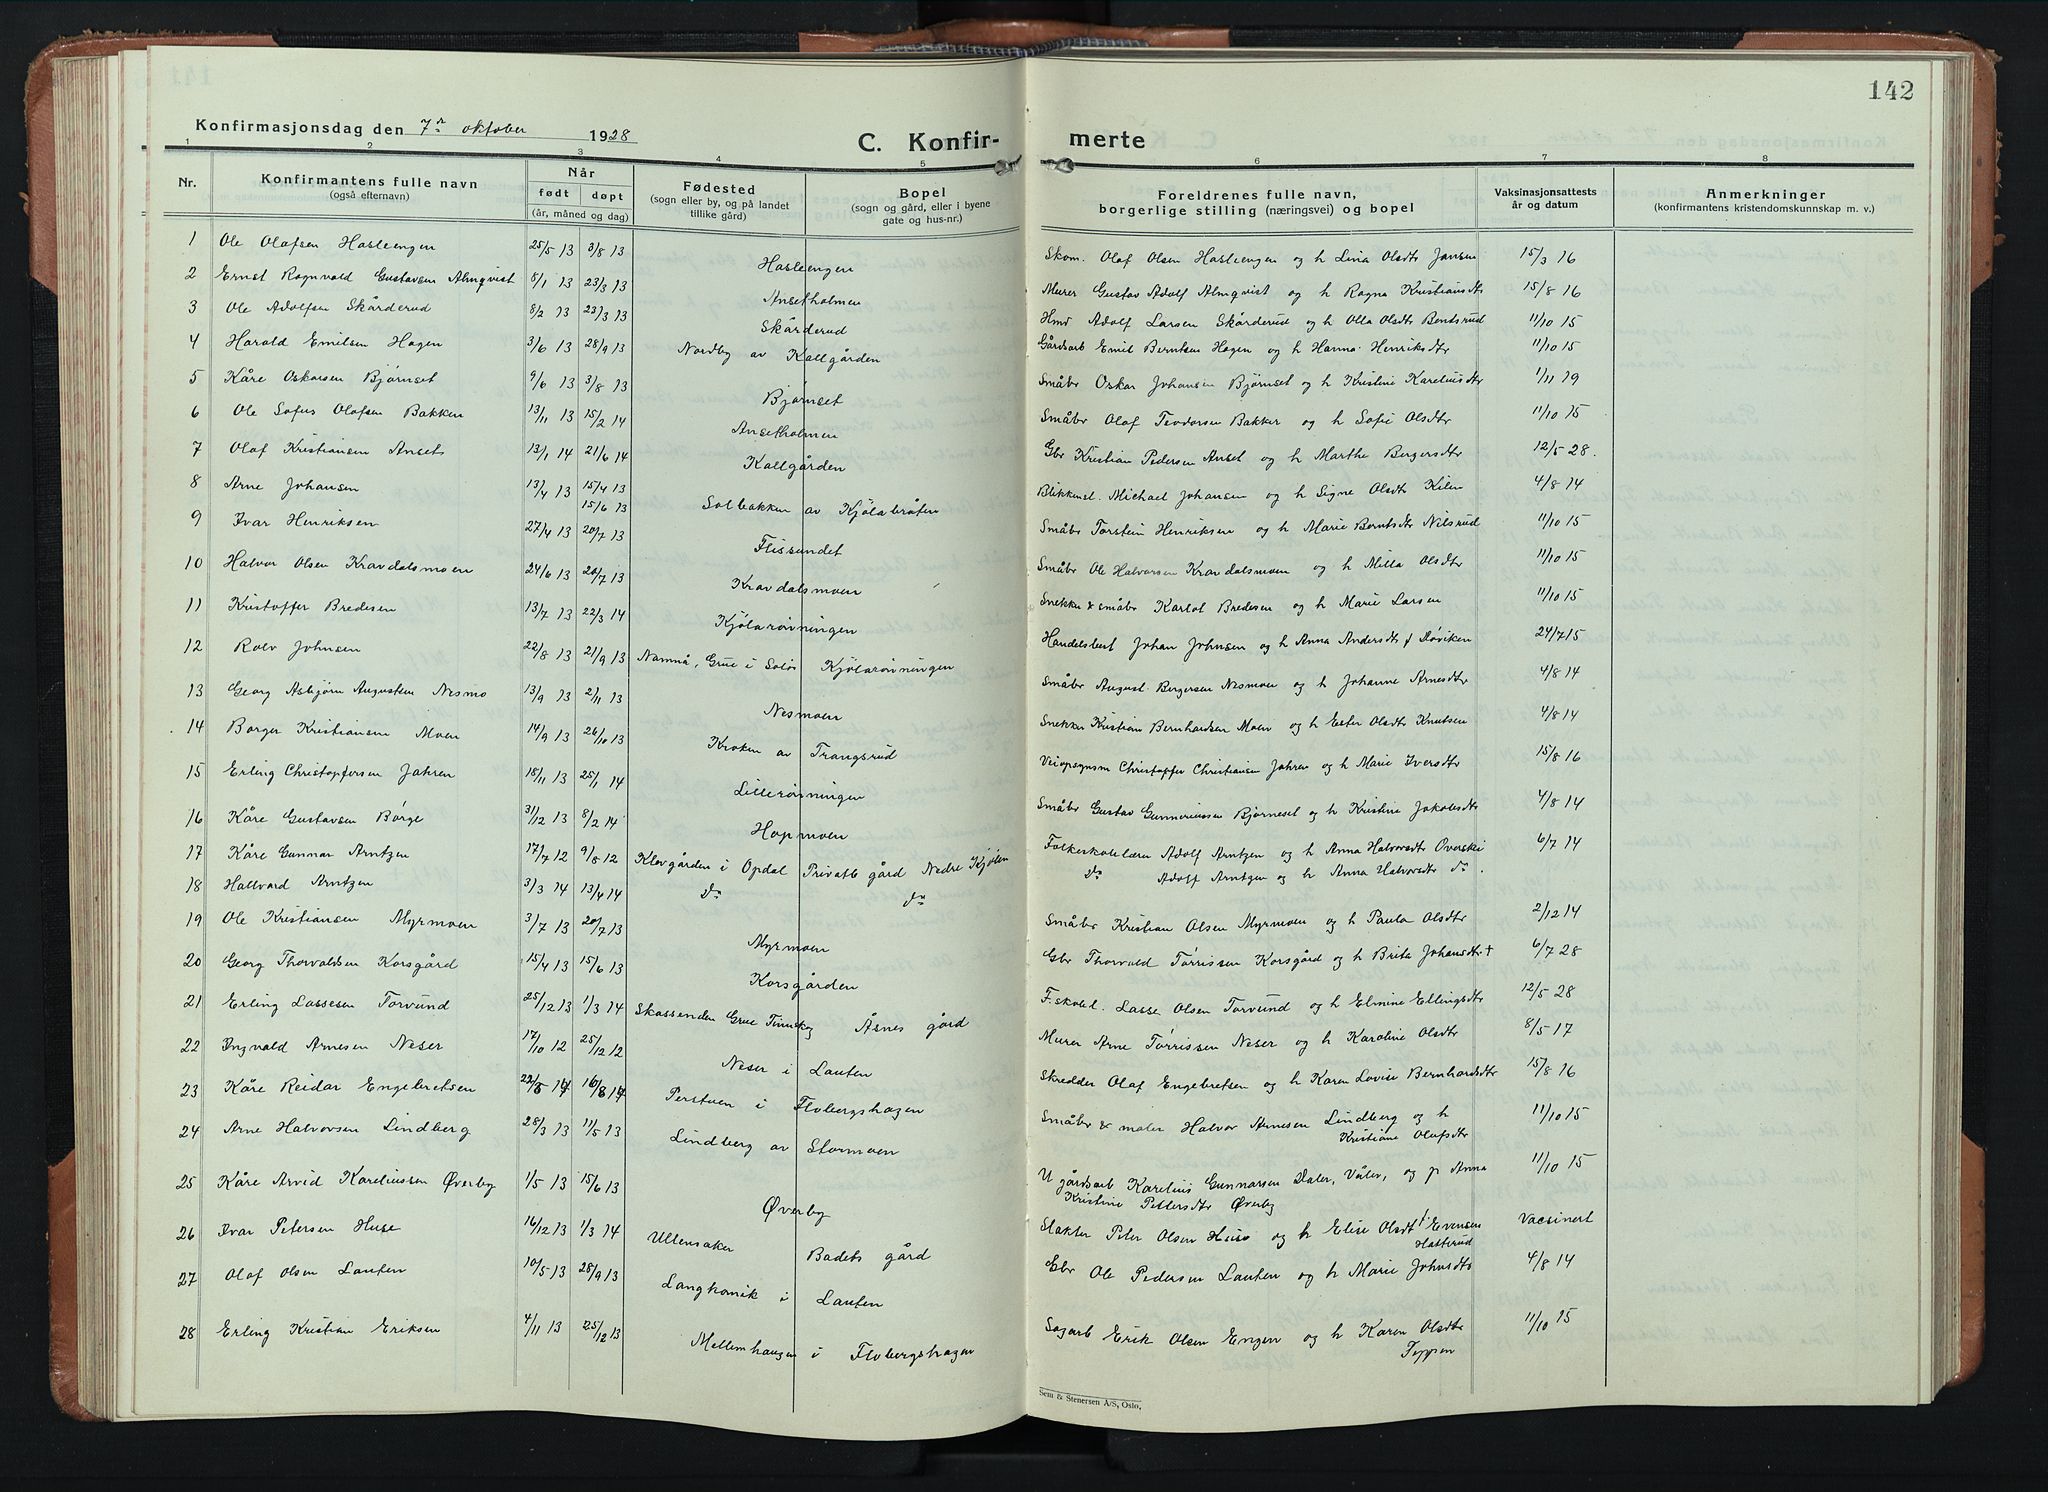 142
Konfirmasjonsdag den 7de oktober 1928
C. Konfirmerte
1 2 3 4 5 6 7 8
Nr.
Konfirmantens fulle navn
(også efternavn)
Når
født døpt
(år, måned og dag)
Fødested
(sogn eller by, og på landet
tillike gård)
Bopel
(sogn og gård, eller i byene
gate og hus-nr.)
Foreldrenes fulle navn,
borgerlige stilling (næringsvei) og bopel
Vaksinasjonsattests
år og datum
Anmerkninger
(konfirmantens kristendomskunnskap m. v.)
1 Ole Olafsen Hasleengen 25/5 13 3/8 13 Hasleengen Skom. Olaf Olsen Hasleengen og h Lina Olsdtr Jansen 15/3 16
2 Ernst Ragnvald Gustavsen Almqvist 8/1 13 23/3 13 Ansetholmen Murer Gustav Adolf Almqvist og h Ragna Kristiansdtr 15/8 16
3 Ole Adolfsen Skårderud 8/2 13 23/3 13 Skårderud Hmd Adolf Larsen Skårderud og h Olla Olsdtr Berntsrud 11/10 15
4 Harald Emilsen Hagen 3/6 13 28/9 13 Nordby av Kallgården Gårdsarb Emil Berntsen Hagen og h Hanna Henriksdtr 11/10 15
5 Kåre Oskarsen Bjørnset 9/6 13 3/8 13 Bjørnset Småbr Oskar Johansen Bjørnset og h Kristine Kareliusdtr 1/11 19
6 Ole Sofus Olafsen Bakken 13/11 13 15/2 14 Ansetholmen Småbr Olaf Teodorsen Bakker og h Sofie Olsdtr 11/10 15
7 Olaf Kristiansen Anset 13/1 14 21/6 14 Kallgården Gbr Kristian Pedersen Anset og h Marthe Bergersdtr 12/5 28.
8 Arne Johansen 13/4 13 15/4 13 15/6 13 Solbakken av Kjølabråten Blikkensl. Michael Johansen og h Signe Olsdtr Kilen 4/8 14
9 Ivar Henriksen 27/4 13 20/7 13 Flissundet Småbr Torstein Henriksen og h Marie Berntsdtr Nilsrud 11/10 15
10 Halvor Olsen Kravdalsmoen 24/6 13 20/7 13 Kravdalsmoen Småbr Ole Halvorsen Kravdalsmoen og h Milla Olsdtr 11/10 15
11 Kristoffer Bredesen 13/7 13 22/3 14 Kjølarøvningen Snekker & småbr Karlot Bredesen og h Marie Larsen 11/10 15
12 Rolv Johnsen 22/8 13 21/9 13 Namnå, Grue i Solør Kjølarøvningen Handelsbest Johan Johnsen og h Anna Andersdtr f Løviken 24/7 15
13 Georg Asbjørn Augustsen Nesmo 13/9 13 2/11 13 Nesmoen Småbr August Bergersen Nesmoen og h Johanne Arnesdtr 4/8 14
14 Borger Kristiansen Moen 14/9 13 26/10 13 Kroken av Trangsrud Snekker Kristian Bernhardsen Moen og h Ester Olsdtr Knutsen 4/8 14
15 Erling Christopfersen Jahren 18/11 13 25/1 14 Lillerøvningen Veiopsynsm Christopffer Christiansen Jahren og h Marie Iversdtr 15/8 16
16 Kåre Gustavsen Børge 31/12 13 8/2 14 Hopmoen Småbr Gustav Gunneriussen Bjørneset og h Kristine Jakobsdtr 4/8 14
17 Kåre Gunnar Arntzen 17/7 12 9/8 12 Klevgården i Opdal Private gård Nedre Kjølen Folkeskolelærer Adolf Arntzen og h Anna Halvorsdtr Overskei 6/7 14
18 Hallvard Arntzen 3/3 14 13/4 14 do do do Adolf Arntzen og h Anna Halvorsdtr do.
19 Ole Kristiansen Myrmoen 3/7 13 20/7 13 Myrmoen Småbr Kristian Olsen Myrmoen og h Paula Olsdtr 2/12 14
20 Georg Thorvaldsen Korsgård 15/4 13 15/6 13 Korsgården Gbr Thorvald Tørrissen Korsgård og h Brita Johansdtr † 6/7 28
21 Erling Lassesen Torvund 25/12 13 1/3 14 Skassenden Grue Finnskog Åsnes gård F.skolel. Lasse Olsen Torvund og h Elmine Ellingsdtr 12/5 28
22 Ingvald Arnesen Neser 17/10 12 25/12 12 Neser i Lauten Murer Arne Tørrissen Neser og h Karoline Olsdtr 8/5 17
23 Kåre Reidar Engebretsen 22/5 14 16/8 14 Perstuen i Flobergshagen Skredder Olaf Engebretsen og h Karen Lovise Bernhardsdtr 15/8 16
24 Arne Halvorsen Lindberg 28/3 13 11/5 13 Lindberg av Stormoen Småbr & maler Halvor Arnesen Lindberg og h 11/10 15
Kristiane Olafsdtr
25 Kåre Arvid Kareliussen Øverby 1/5 13 15/6 13 Øverby U gårdsarb Karelius Gunnarsen Daler, Våler, og p Anna 11/10 15
Kristine Pettersdtr Øverby
26 Ivar Petersen Huse 16/12 13 1/3 14 Ullensaker Badets gård Slakter Peter Olsen Huse og h Elise Olsdtr f. Evensen Vacsinert
Hatterud
27 Olaf Olsen Lauten 10/5 13 28/9 13 Langhomik i Lauten Gbr Ole Pedersen Lauten og h Marie Johnsdtr 4/8 14
28 Erling Kristian Eriksen 4/11 13 25/12 13 Mellemhaugen i Flobergshagen Sagarb Erik Olsen Engen og h Karen Olsdtr 11/10 15
Teppen
Sem & Stenersen A/S, Oslo.